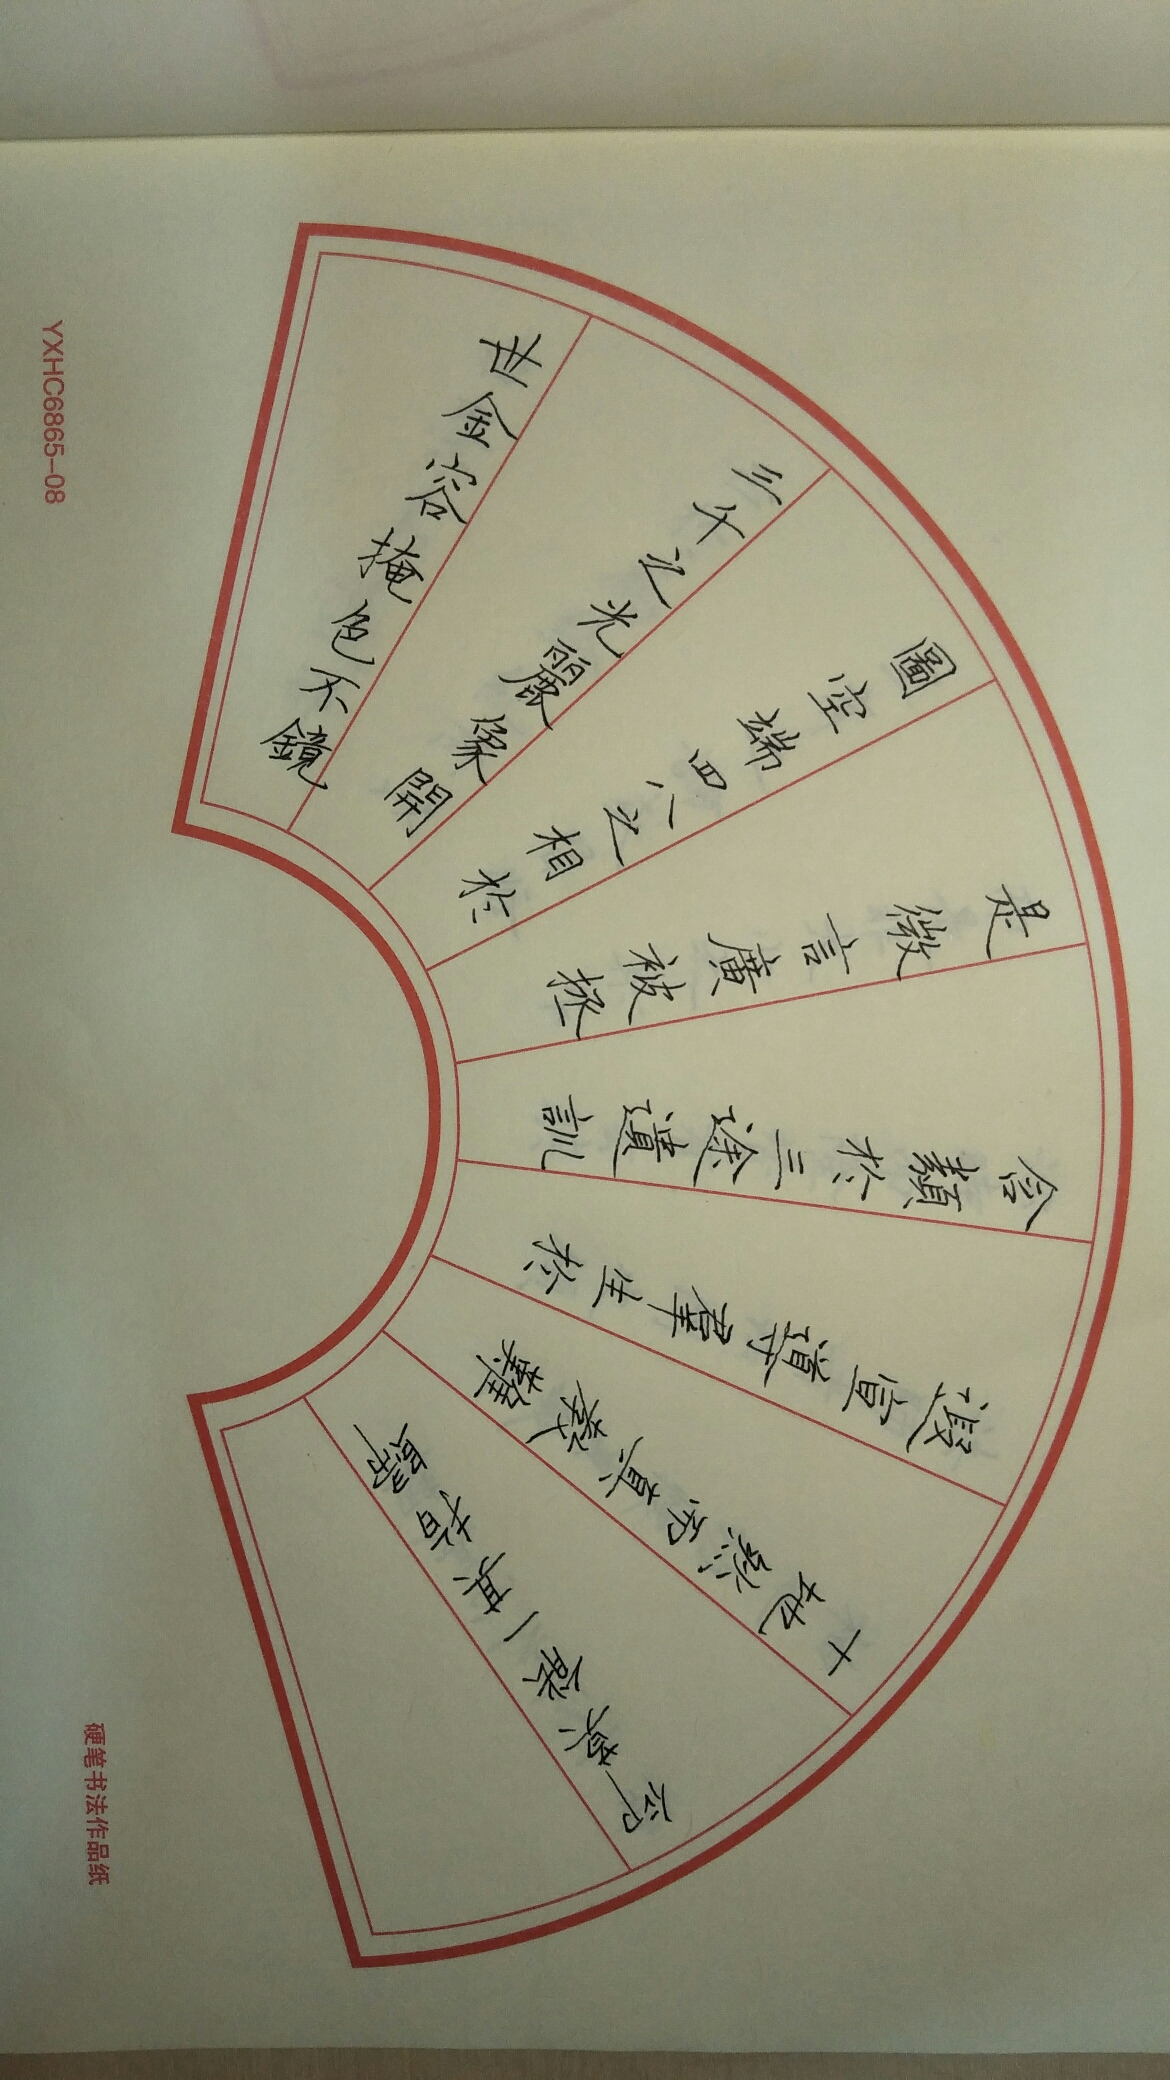 世金容掩色不鏡
三千之光麗像開
圖空端四八之相於
是微言廣被拯
含類於三途遺訓
遐宣導羣生於
十地然而真教難
仰莫能一其指歸
YXHC6865-08
硬笔书法作品纸